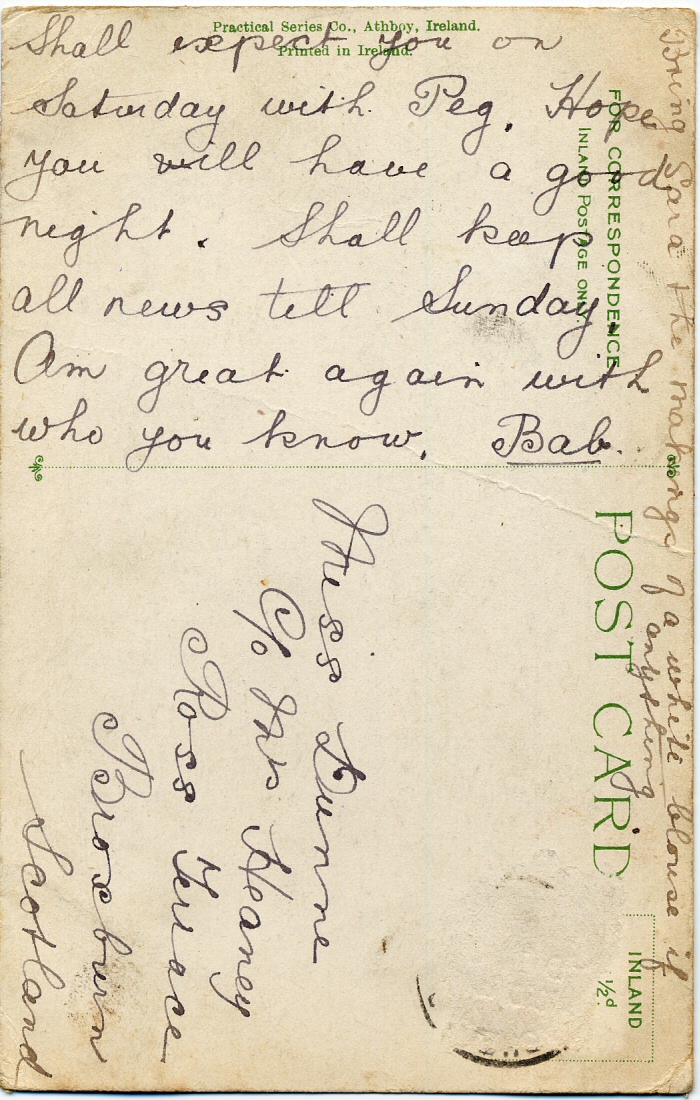 Practical Series Co., Athboy, Ireland.
Printed in Ireland.
Shall expect you on
Saturday with Peg. Hope
you will have a good
night. Shall keep
all news till Sunday.
Am great again with
who you know. Bab.
Bring Sara & the makings of a white blouse if
anything
FOR CORRESPONDENCE
INLAND POSTAGE ONLY
POST CARD
INLAND
½d
Miss Dunne
C/o Mrs Heaney
Ross Terrace
Broxburn
Scotland